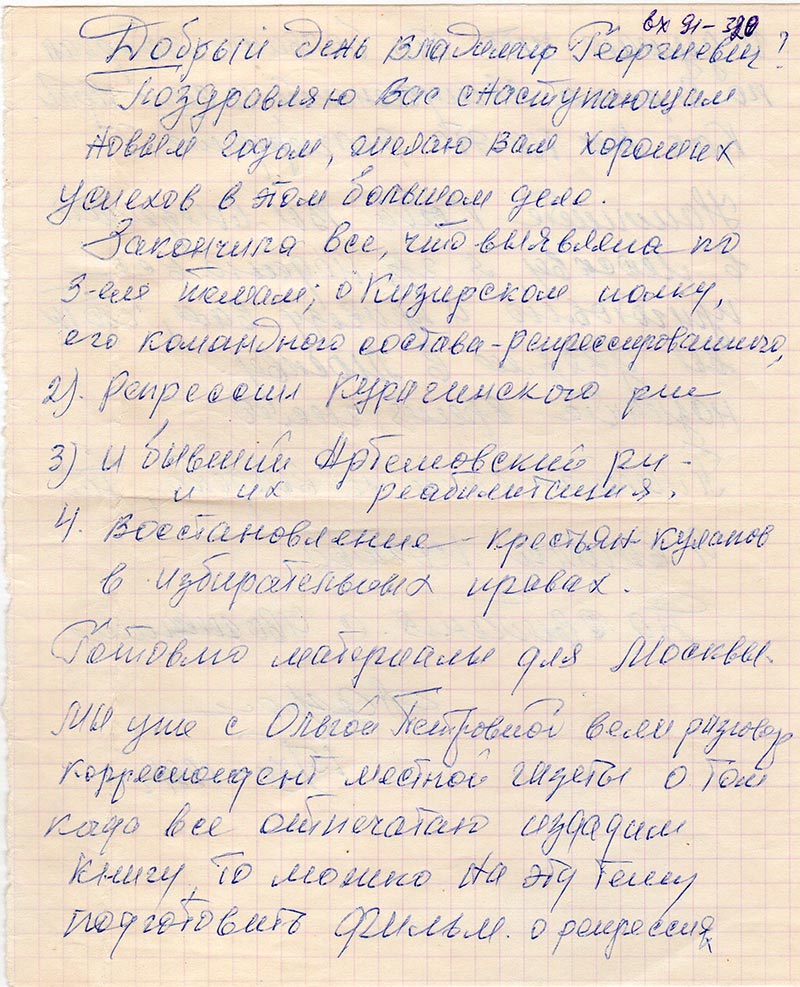 вх 91-390
Добрый день Владимир Георгиевич!
Поздравляю Вас с Наступающим
новым годом, желаю Вам хороших
успехов в этом большом деле.
Закончила все, что выявляла по
3-ем темам; о Кизирском полку,
его командного состава-репрессированного,
2). Репрессии Курагинского р-на
3) и бывший Артемовский р-н -
и их реабилитация.
4. Восстановление - крестьян-кулаков
в избирательных правах.
Готовлю материалы для Москвы.
Мы уже с Ольгой Петровной вели разговор
корреспондент местной газеты о том
када все отпечатаю издадим
книгу, то можно на эту тему
подготовить фильм. о репрессиях